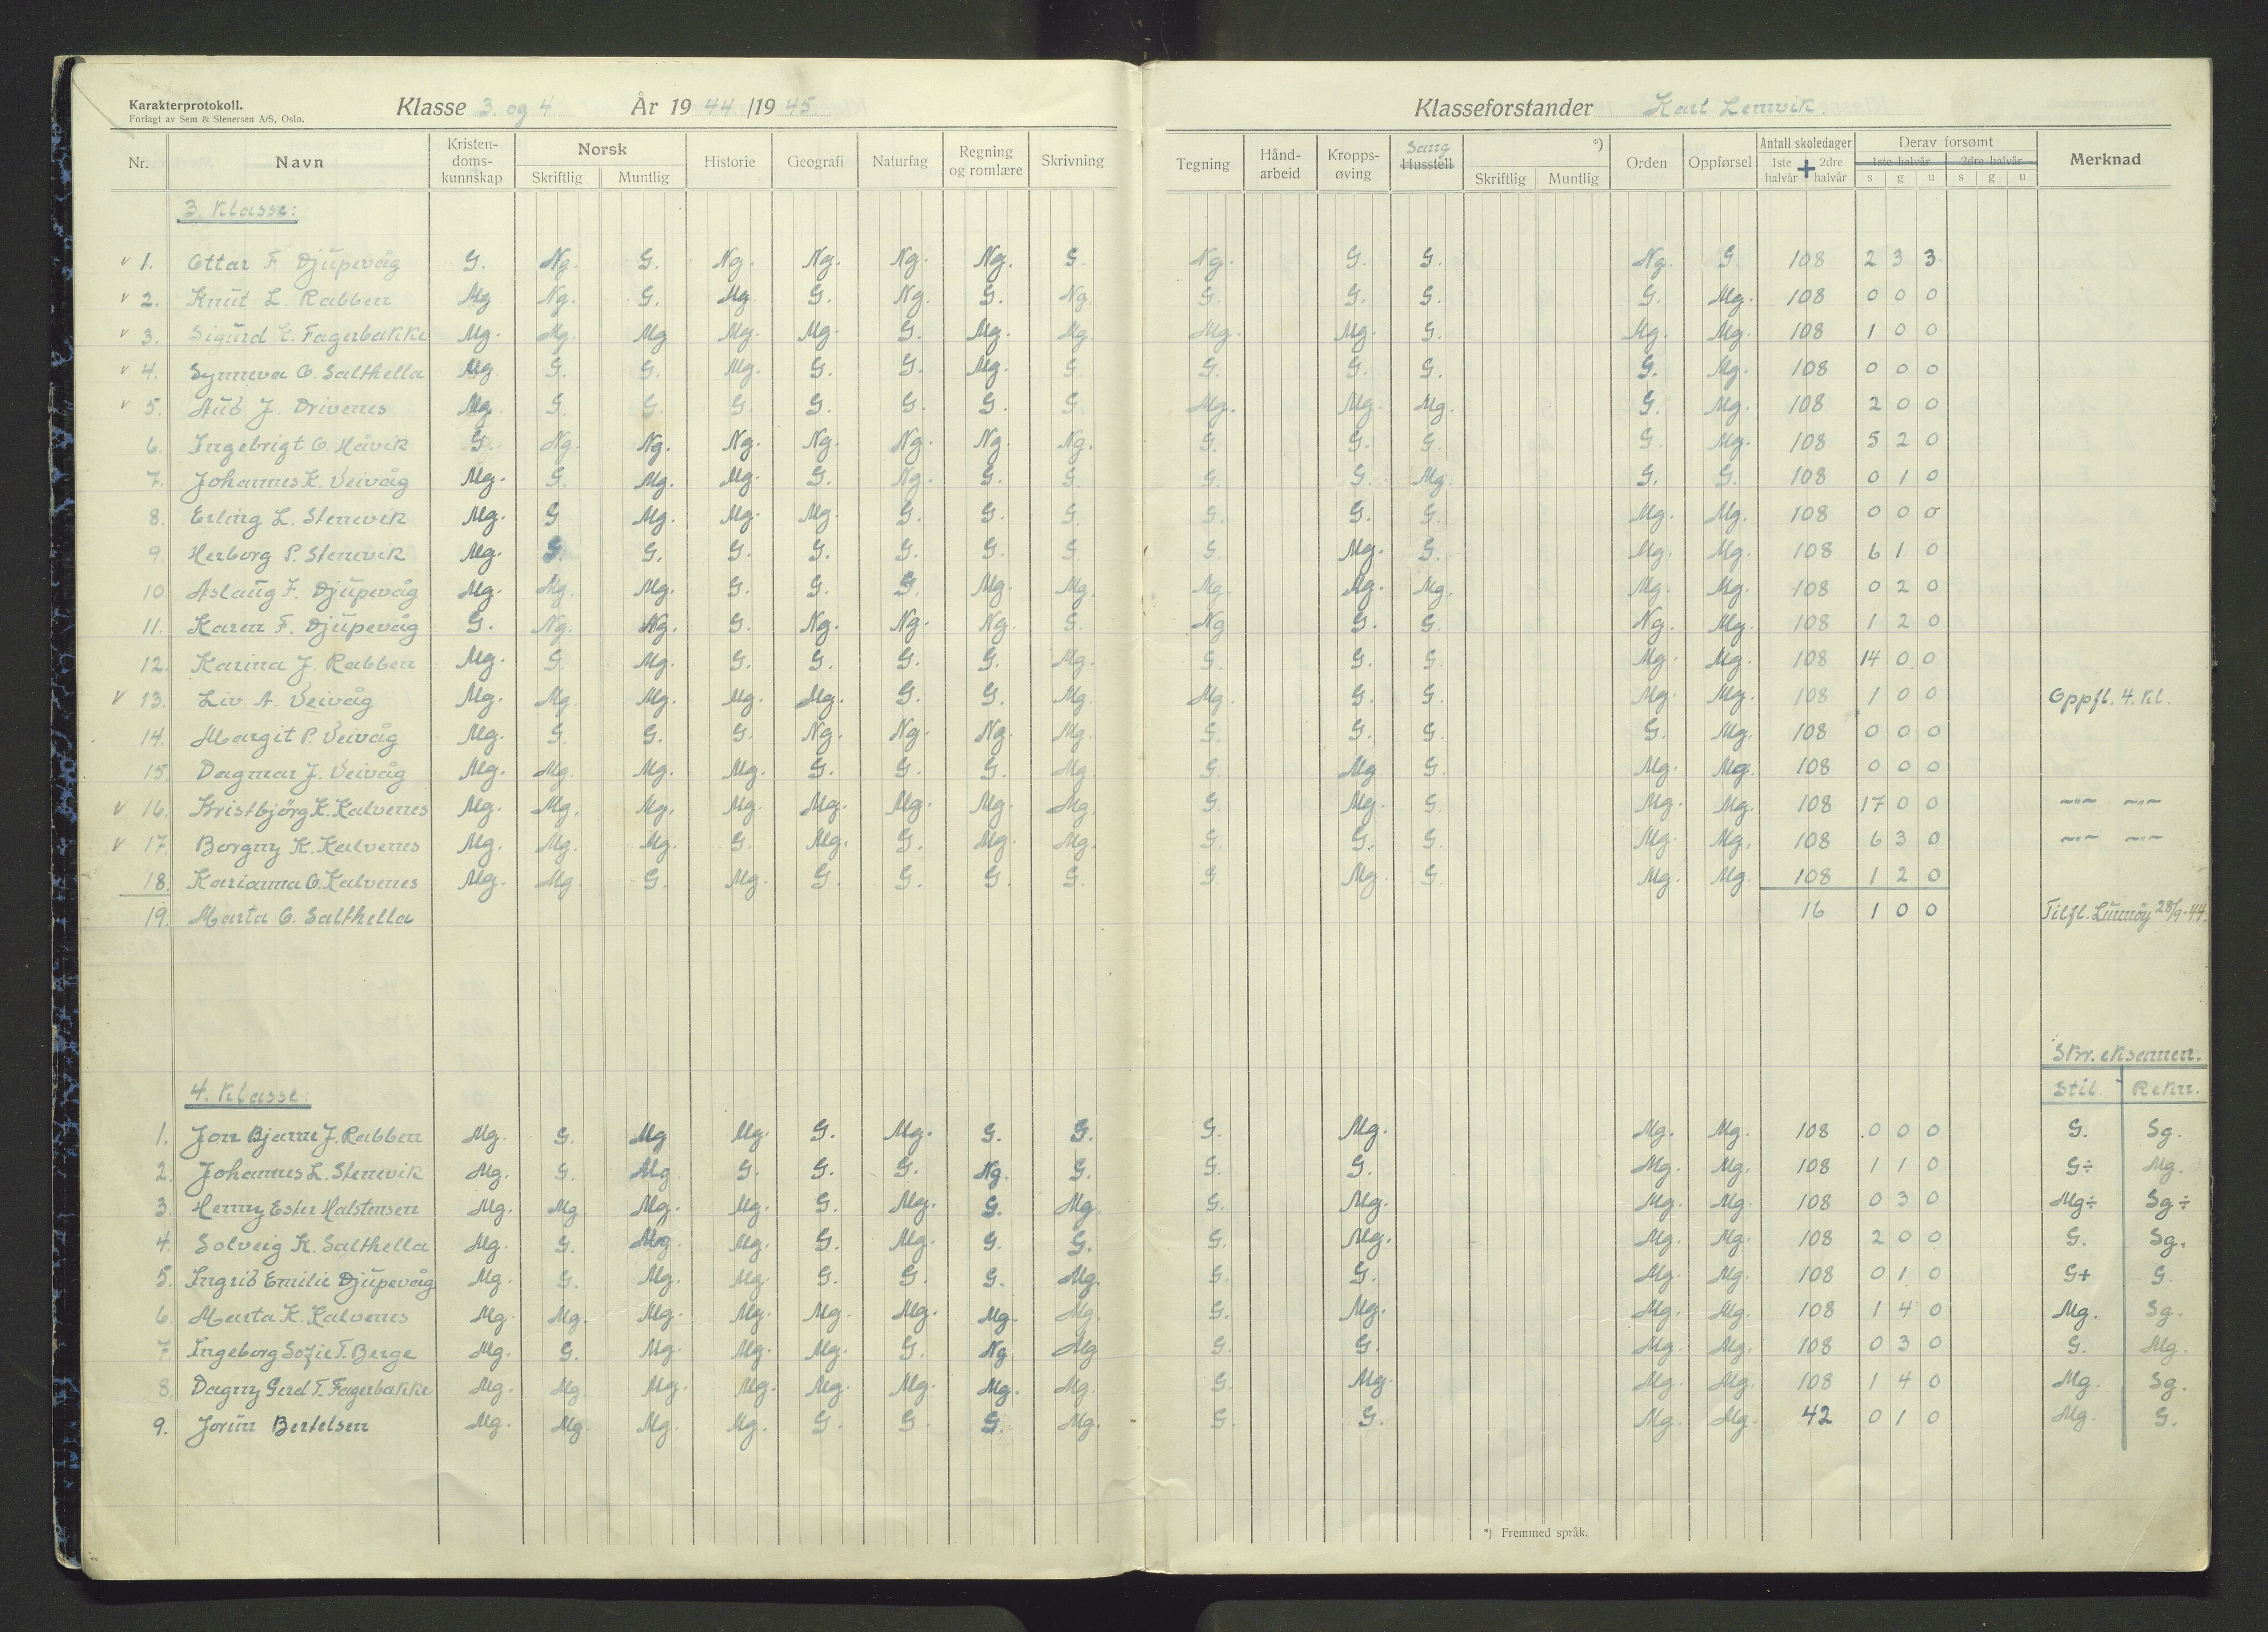 Karakterprotokoll.
Forlagt av Sem & Stenersen A/S, Oslo.
Klasse 3. og 4. År 19 44 /19 45
Klasseforstander Karl Lemvik.
Nr. Navn Kristen-doms-kunnskap Norsk Skriftlig Muntlig Historie Geografi Naturfag Regning og romlære Skrivning Tegning Hånd-arbeid Kropps-øving Sang Husstell *) Skriftlig Muntlig Orden Oppførsel Antall skoledager 1ste halvår + 2dre halvår Derav forsømt 1ste halvår s g u 2dre halvår s g u Merknad
3. Klasse:
v 1. Ottar F. Djupevåg G. Ng. G. Ng. Ng. Ng. Ng. G. Ng. G. G. Ng. G. 108 2 3 3
v 2. Knut L. Rabben Mg Ng. G. Mg. G. Ng. G. Ng. G. G. G. G. Mg. 108 0 0 0
v 3. Sigurd K. Fagerbakke Mg. Mg. Mg Mg. Mg. G. Mg. Mg. Mg. Mg. G. Mg. Mg. 108 1 0 0
v 4. Synneva O. Salthella Mg. G. G. Mg. G. G. Mg. G. G. G. G. G. Mg. 108 0 0 0
v 5. Aud J. Drivenes Mg. G. G. G. G. G. G. G. Mg. Mg. Mg. G. Mg. 108 2 0 0
6. Ingebrigt O. Håvik G. Ng. Ng. Ng. Ng. Ng. Ng. Ng. G. G. G. G. Mg. 108 5 2 0
7. Johannes K. Veivåg Mg. G. Mg. Mg. G. Ng. G. G. G. G. Mg. G. G. 108 0 1 0
8. Erling L. Stenevik Mg. G Mg. Mg. Mg. G. G. G. G. G. G. Mg. Mg. 108 0 0 0
9. Herborg P. Stenevik Mg. G. G. G. G. G. G. G. G. Mg. G. Mg. Mg. 108 6 1 0
10. Aslaug F. Djupevåg Mg. Mg. Mg. G. G. G. Mg. Mg. Mg. Mg. Mg. Mg. Mg. 108 0 2 0
11. Karen F. Djupevåg G. Ng. Ng. G. Ng. Ng. Ng. G. Ng G. G. Ng. Mg. 108 1 2 0
12. Karina J. Rabben Mg. G. Mg. G. G. G. G. Mg. G. G. G. Mg. Mg. 108 14 0 0
v 13. Liv A. Veivåg Mg. Mg. Mg. Mg. Mg. G. G. Mg. Mg. G. G. Mg. Mg. 108 1 0 0 Oppfl. 4. Kl.
14. Margit P. Veivåg Mg. G. G. G. Ng. Ng. Ng. Mg. G. G. G. G. Mg. 108 0 0 0
15. Dagmar J. Veivåg Mg. Mg. Mg. Mg. G. G. G. Mg G. Mg G. Mg. Mg. 108 0 0 0
v 16. Kristbjörg K. Kalvenes Mg. Mg. Mg. Mg. Mg. Mg. Mg. Mg. G. Mg. G. Mg. Mg. 108 17 0 0 —"— —"—
v 17. Borgny K. Kalvenes Mg. Mg. Mg. G. Mg. G. Mg. Mg. G. G. G. Mg. Mg. 108 6 3 0 —"— —"—
18. Karianna O. Kalvenes Mg. Mg. G. Mg. G. G. G. G. G. Mg. G. Mg. Mg. 108 1 2 0
19. Marta O. Salthella 16 1 0 0 Tilfl. Lunnöy 28/9-44.
Skr. eksamen.
4. Klasse: Stil. Rekn.
1. Jon Bjarne J. Rabben Mg. G. Mg Mg. G. Mg. G. G. G. Mg. Mg. Mg. 108 0 0 0 G. Sg.
2. Johannes L. Stenevik Mg. G. Mg G. G. G. Ng. G. G. G. Mg. Mg. 108 1 1 0 G÷ Mg.
3. Henny Ester Halstensen Mg. Mg Mg. Mg. G. Mg. G. Mg. G. Mg. Mg. Mg. 108 0 3 0 Mg÷ Sg÷
4. Solveig K. Salthella Mg. G. Mg. Mg. G. Mg. G. G. G. Mg. Mg. Mg. 108 2 0 0 G. Sg.
5. Ingrid Emilie Djupevåg Mg. G. Mg. Mg. G. G. G. Mg. G. G. Mg. Mg. 108 0 1 0 G+ G.
6. Marta K. Kalvenes Mg. Mg. Mg. Mg. Mg. Mg. Mg. Mg. G. Mg. Mg. Mg. 108 1 4 0 Mg. Sg.
7. Ingeborg Sofie T. Berge Mg. G. Mg. Mg. Mg. G. Ng Mg G. G. Mg. Mg. 108 0 3 0 G. Mg.
8. Dagny Gerd T. Fagerbakke Mg. Mg. Mg. Mg. Mg. Mg. Mg. Mg. G. Mg. Mg. Mg. 108 1 4 0 Mg. Sg.
9. Jorun Bertelsen Mg. Mg. Mg. Mg. G. G. G. Mg. G. G. Mg. Mg. 42 0 1 0 Mg. G.
*) Fremmed språk.